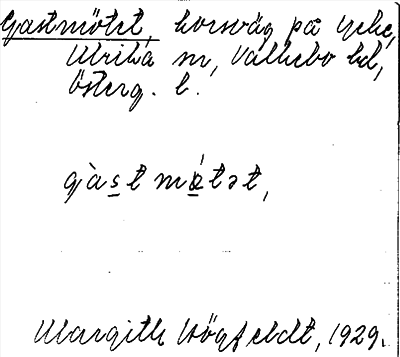 Gastmötet, korsväg på Ycke,
Ulrika sn, Valkebo hd,
Österg. l.
gàst mǿtət,
Margith Högfeldt, 1929.